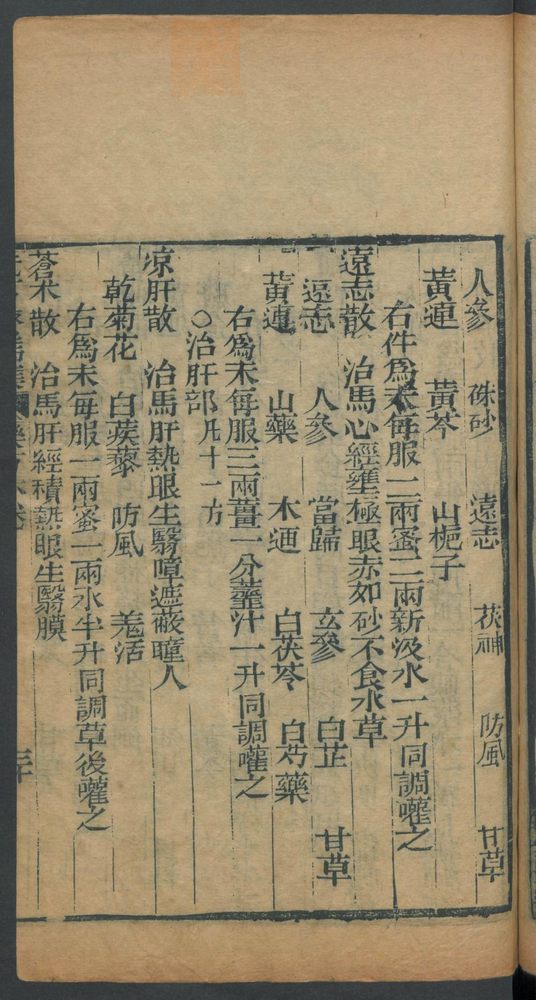 人參 硃砂 遠志 茯神 防風 甘草
黃連 黃芩 山梔子
右件爲末每服二兩蜜二兩新汲水一升同調嚾之
遠志散 治馬心經壅極眼赤如砂不食水草
遠志 人參 當歸 玄參 白芷 甘草
黃連 山藥 木通 白茯苓 白芍藥
右爲末每服三兩薑一分虀汁一升同調嚾之
○治肝部凡十一方
凉肝散 治馬肝熱眼生翳障遮蔽瞳人
乾菊花 白蒺藜 防風 羌活
右爲末每服一兩蜜一兩水半升同調草後嚾之
蒼术散 治馬肝經積熱眼生翳膜